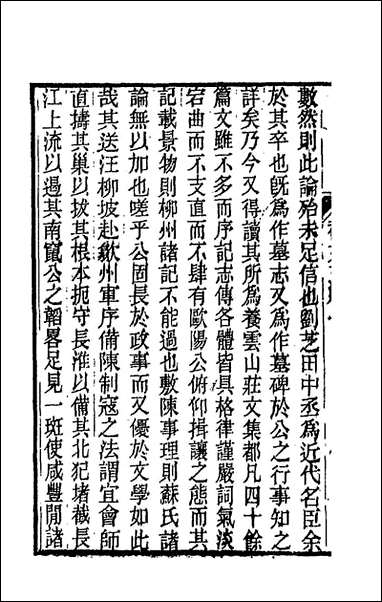 數然則此論殆未足信也劉芝田中丞爲近代名臣余
於其卒也既爲作墓志又爲作墓碑於公之行事知之
詳矣乃今又得讀其所爲養雲山莊文集都凡四十餘
篇文雖不多而序記志傳各體皆具格律謹嚴詞氣淡
宕曲而不支直而不肆有歐陽公俯仰揖讓之態而其
記載景物則柳州諸記不能過也敷陳事理則蘇氏諸
論無以加也嗟乎公固長於政事而又優於文學如此
哉其送汪柳坡赴歙州軍序備陳制寇之法謂宜會師
直擣其巢以拔其根本扼守長淮以備其北犯堵截長
江上流以遏其南竄公之韜畧足見一斑使咸豐閒諸